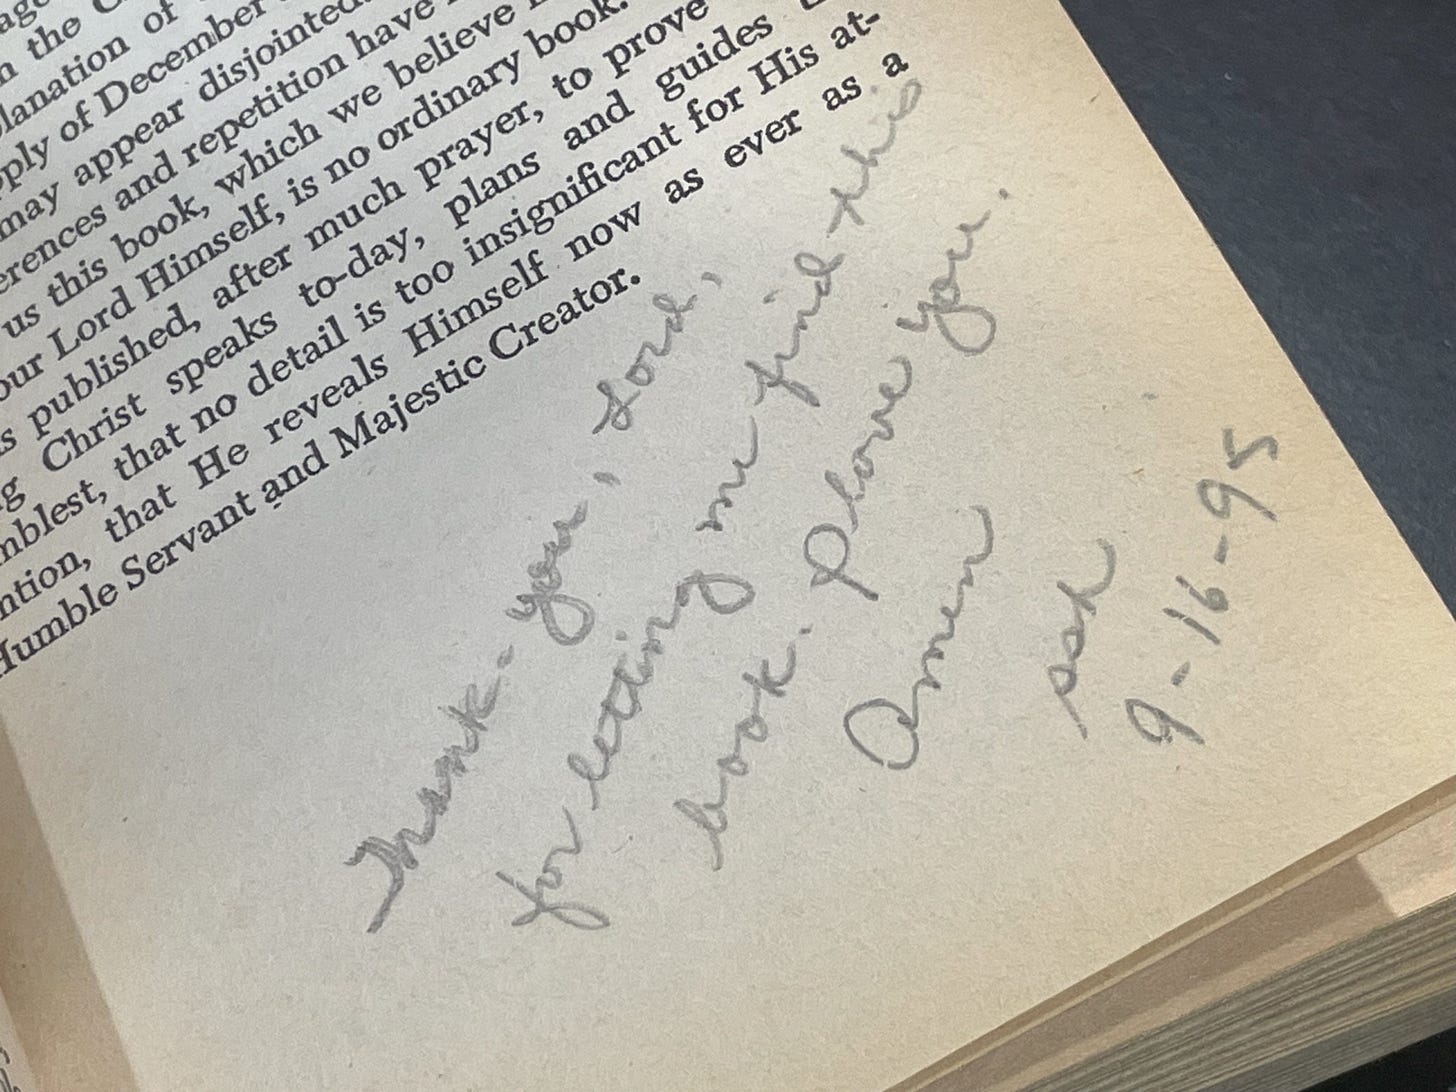 n the
lanation of
ply of December
may appear disjointed
erences and repetition have
us this book, which we believe
our Lord Himself, is no ordinary book.
s published, after much prayer, to prove
g Christ speaks to-day, plans and guides
mblest, that no detail is too insignificant for His at-
ntion, that He reveals Himself now as ever as a
Humble Servant and Majestic Creator.
Thank-you, Lord,
for letting me find this
book. I love you.
Amen
9-16-95